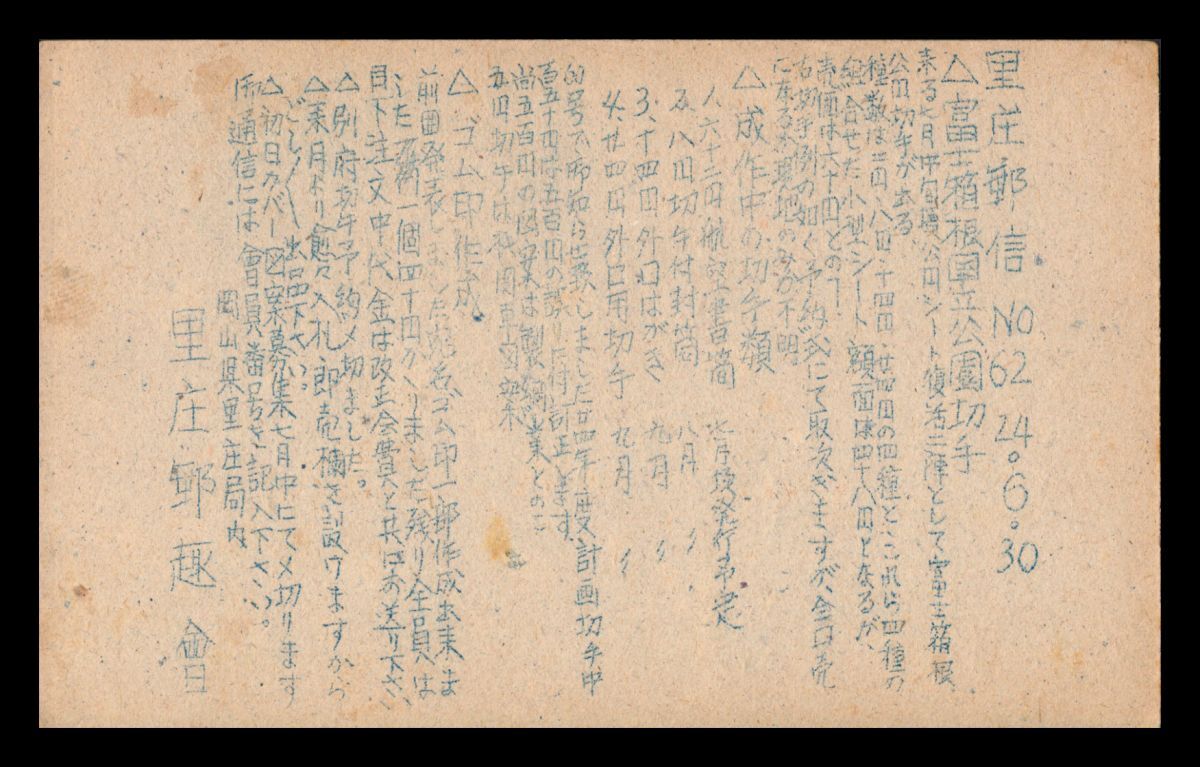 里庄郵信 NO 62 24.6.30
△富士箱根国立公園切手
来る七月中旬 公園シート復活二陣として富士箱根
公園切手が出る
種数は二円、八円、十四円、廿四円の四種と、これら四種の
組合せた小型シート 額面は四十八円となるが、
売価は六十円との事
右切手例の如く予約式にて取次ぎますが全国売
になるか現地のみか不明
△成作中の切手類
1、六十二円航空書簡 七月頃発行予定
2、八円切手付封筒 八月 〃
3、十四円外国はがき 九月 〃
4、廿四円外国用切手 九月 〃
60号で御知らせ致しました廿四年度計画切手中
百五十円は五百円の誤りに付訂正します
尚五百円の図案は製鋼業との事
五円切手は
△ゴム印作成
前回発表しました宛名ゴム印一部作成出来ま
した 一個四十円かゝりました残り全員は
目下注文中代金は改正会費と共にお送り下さい
△別府切手予約〆切ました。
△来月より愈々入札即売欄を設けますから
どし〳〵出品下さい。
△初日カバー図案募集七月中にて〆切ります
御通信には會員番号を記入下さい。
岡山県里庄局内
里庄郵趣會